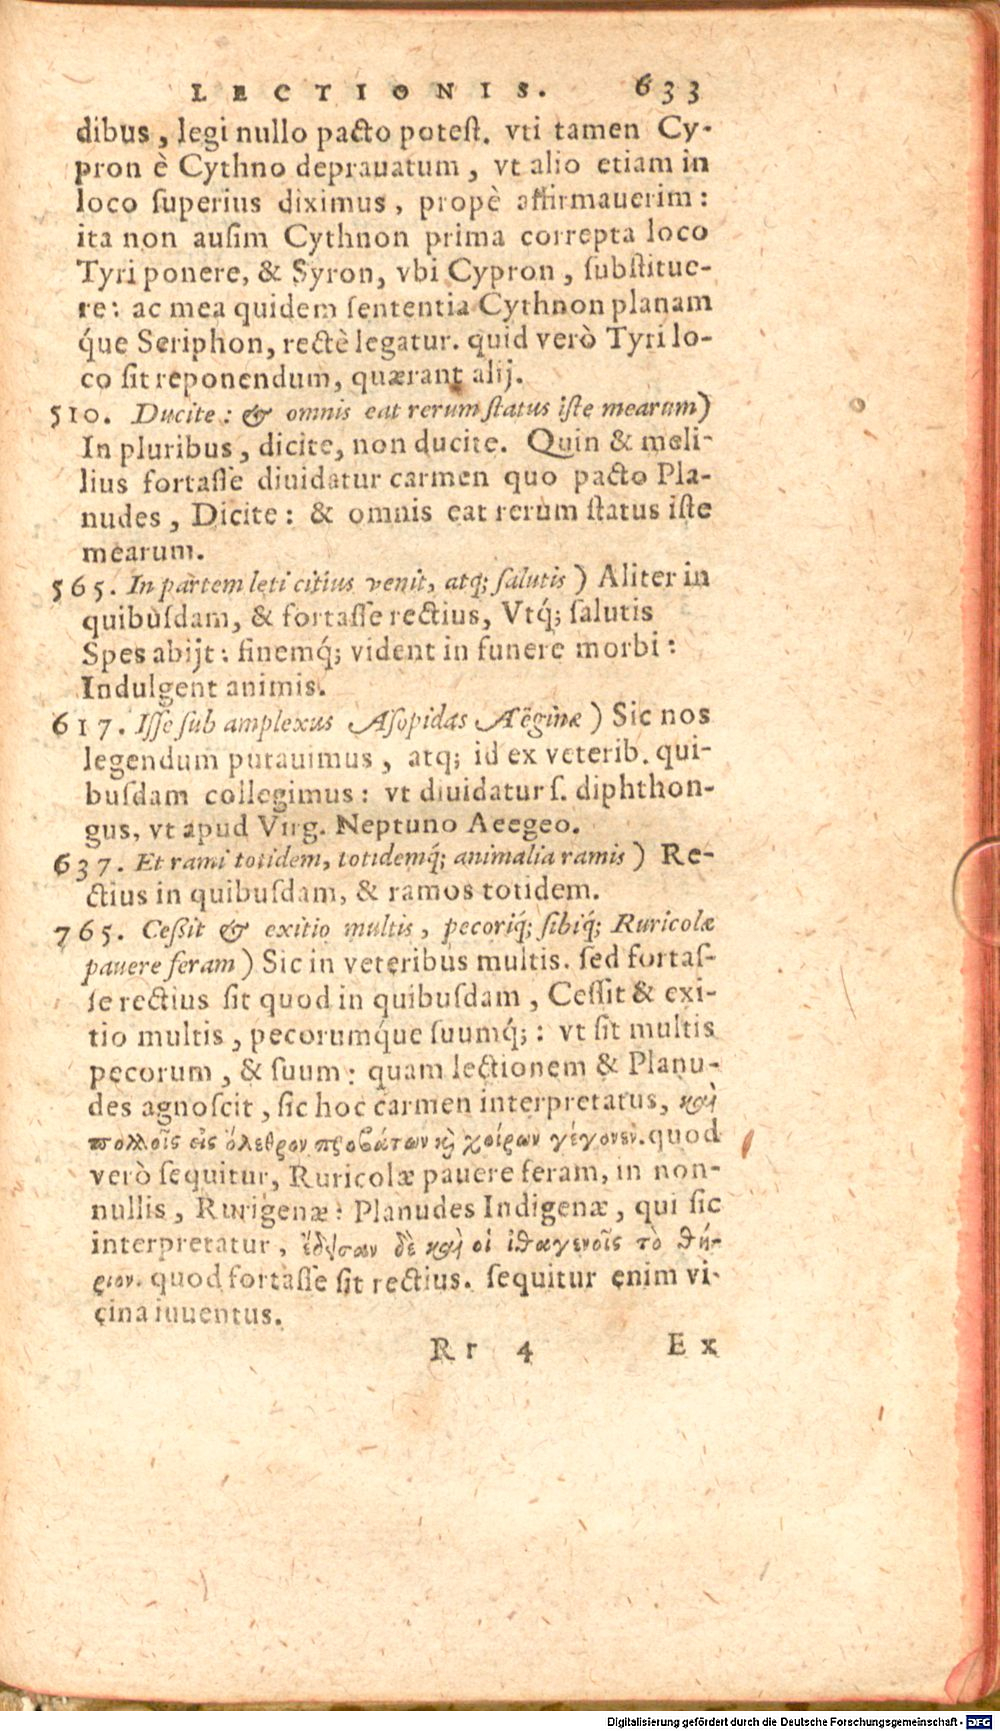 LECTIONIS. 633
dibus, legi nullo pacto poteſt. vti tamen Cy-
pron è Cythno deprauatum, vt alio etiam in
loco ſuperius diximus, propè affirmauerim:
ita non auſim Cythnon prima correpta loco
Tyri ponere, & Syron, vbi Cypron, ſubſtitue-
re: ac mea quidem ſententia Cythnon planam
q́ue Seriphon, rectè legatur. quid verò Tyri lo-
co ſit reponendum, quærant alij.
510. Ducite: & omnis eat rerum ſtatus iſte mearum)
In pluribus, dicite, non ducite. Quin & meli-
lius fortaſſe diuidatur carmen quo pacto Pla-
nudes, Dicite: & omnis eat rerum ſtatus iſte
mearum.
565. In partem leti citius venit, atq; ſalutis) Aliter in
quibuſdam, & fortaſſe rectius, Vtq́; ſalutis
Spes abijt: finemq́; vident in funere morbi:
Indulgent animis.
617. Iſſe ſub amplexus Aſopidas Aëginæ) Sic nos
legendum putauimus, atq; id ex veterib. qui-
buſdam collegimus: vt diuidatur ſ. diphthon-
gus, vt apud Virg. Neptuno Aeegeo.
637. Et rami totidem, totidemq́; animalia ramis) Re-
ctius in quibuſdam, & ramos totidem.
765. Ceſſit & exitio multis, pecoriq́; ſibiq́; Ruricolæ
pauere feram) Sic in veteribus multis. ſed fortaſ-
ſe rectius ſit quod in quibuſdam, Ceſſit & exi-
tio multis, pecorumq́ue ſuumq́;: vt ſit multis
pecorum, & ſuum: quam lectionem & Planu-
des agnoſcit, ſic hoc carmen interpretatus, καὶ
πολλοῖς εἰς ὄλεθρον προβάτων κὶ χοίρων γέγονεν. quod
verò ſequitur, Ruricolæ pauere feram, in non-
nullis, Rurigenæ: Planudes Indigenæ, qui ſic
interpretatur, ἔδεισαν δὲ καὶ οἱ ἰθαγενοῖς τὸ θή-
ριον. quod fortaſſe ſit rectius. ſequitur enim vi-
cina iuuentus.
Rr 4 Ex
Digitalisierung gefördert durch die Deutsche Forschungsgemeinschaft - DFG